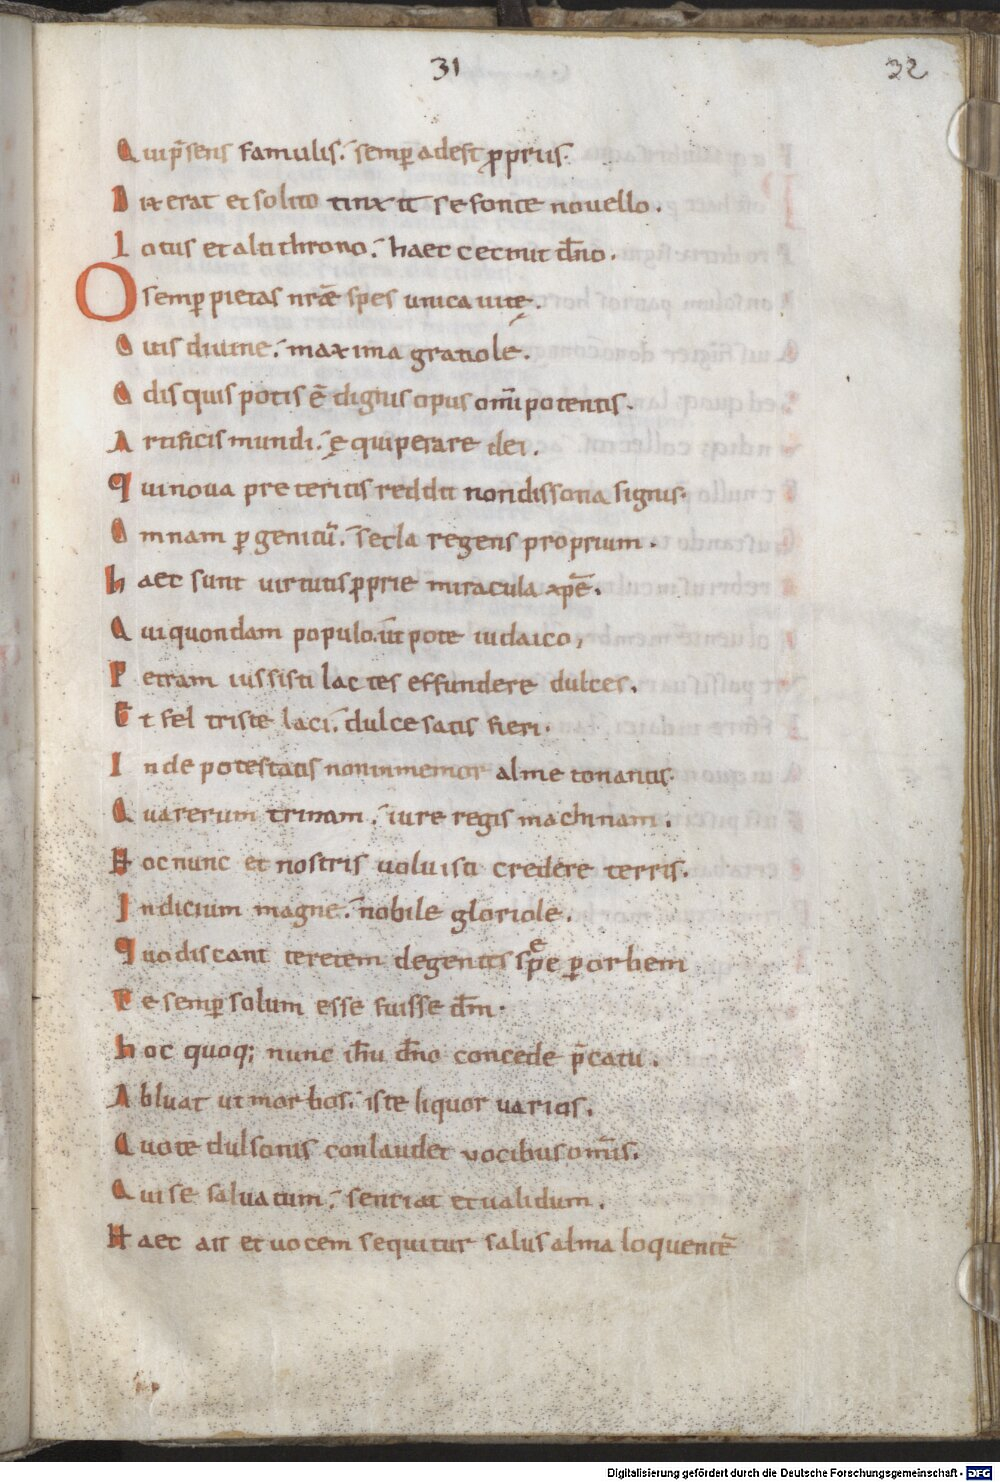 31
32
Qui p̄sens famulis. semꝑ adest ꝓpriis.
Dixerat et solito tinxit se fonte nouello.
Lotus et alti throno. haec cecinit dn̄o.
O semꝑ pietas nr̄ae spes unica uitę.
Ouis diuine. maxima gratiole.
Odis quis potis ē dignus opus om̄ipotentis.
Artificis mundi. ęquiperare dei.
Qui noua preteritis reddit non dissona signis.
Omnam ꝑ genitū. secla regens proprium.
Haec sunt uirtutis ꝓprie miracula xp̄e.
Qui quondam populo. ut pote iudaico,
Petram iussisti lactes effundere dulces.
Et fel triste laci. dulce satis fieri.
Inde potestatis non inmemor alme tonantis.
Qua rerum trinam. iure regis machinam.
Hoc nunc et nostris uoluisti credere terris.
Indicium magne. nobile gloriole.
Quo discant teretem degentes spe ꝑ orbem
Te semꝑ solum esse fuisse dm̄.
Hoc quoq; nunc ih̄u dn̄o concede p̄catu.
Abluat ut morbos. iste liquor uarios.
Quo te dulsonis conlaudet uocibus om̄is.
Qui se saluatum. sentiat et ualidum.
Haec ait et uocem sequitur salus alma loquentē
Digitalisierung gefördert durch die Deutsche Forschungsgemeinschaft - DFG